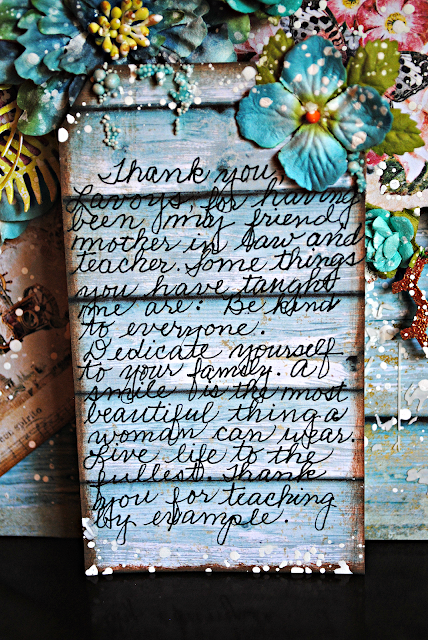 Thank you,
Lavoys, for having
been my friend,
mother in law and
teacher. Some things
you have taught
me are: Be kind
to everyone.
Dedicate yourself
to your family. A
smile is the most
beautiful thing a
woman can wear.
Live life to the
fullest. Thank
you for teaching
by example.